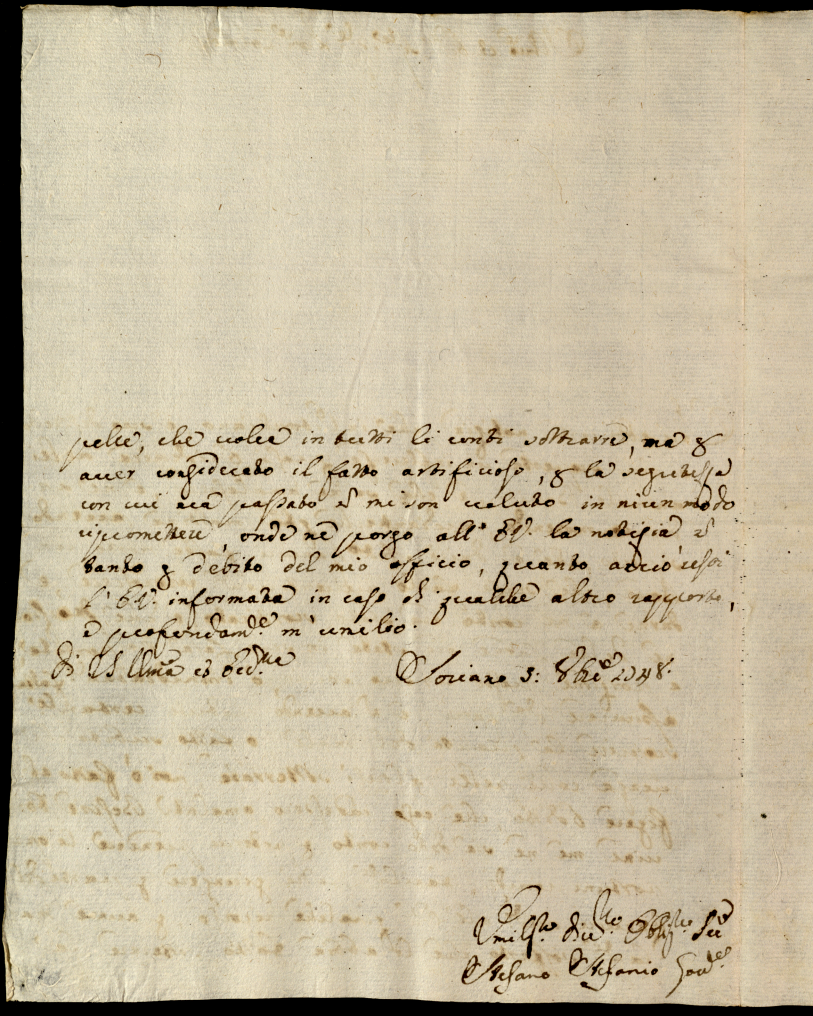 pelle, che volea in tutti li conti sottrarre, ma p
aver considerato il fatto artificioso, p la segretezza
con cui era passato e mi son valuto in niun modo
ripromettere, onde ne porgo all' E.V. la notizia e
tanto p debito del mio officio, quanto acciò resti
l' E.V. informata in caso di qualche altro rapporto,
e profondam.e m' umilio.
di V.S. Illma ed
Soriano 3: 8bre 1748.
Umiliss.mo Obblig.mo
Stefano Stefanio Gov.e